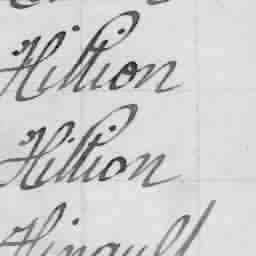 Hillion
Hillion
Hinault